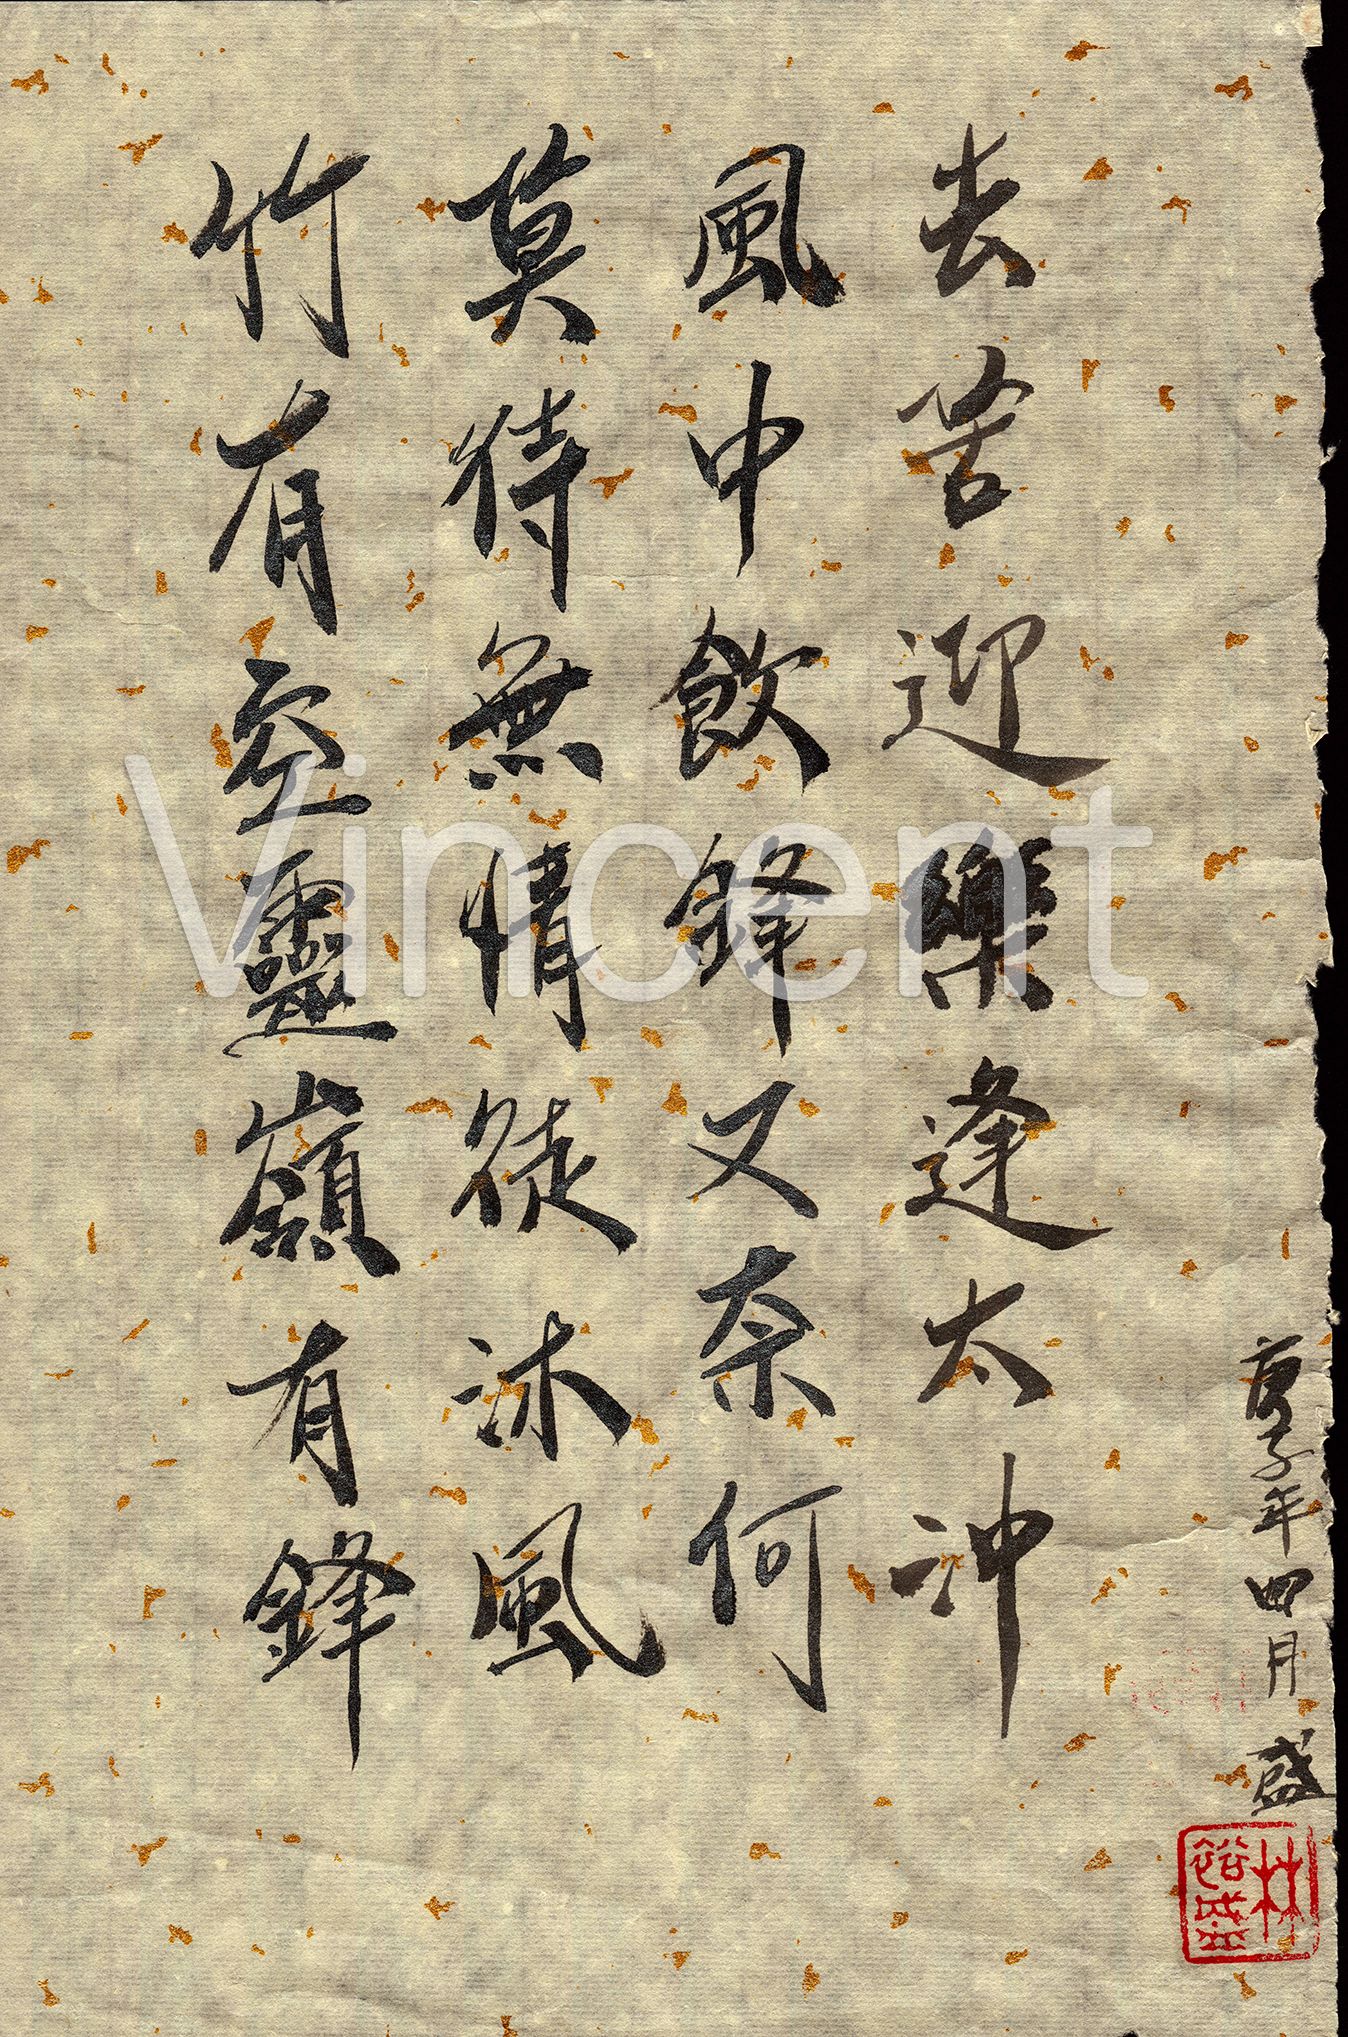 竹有空靈嶺有鋒
莫待無情徒沐風
風中飲鋒又奈何
去苦迎樂逢太冲
庚子年四月 盛
林裕盛
Vincent